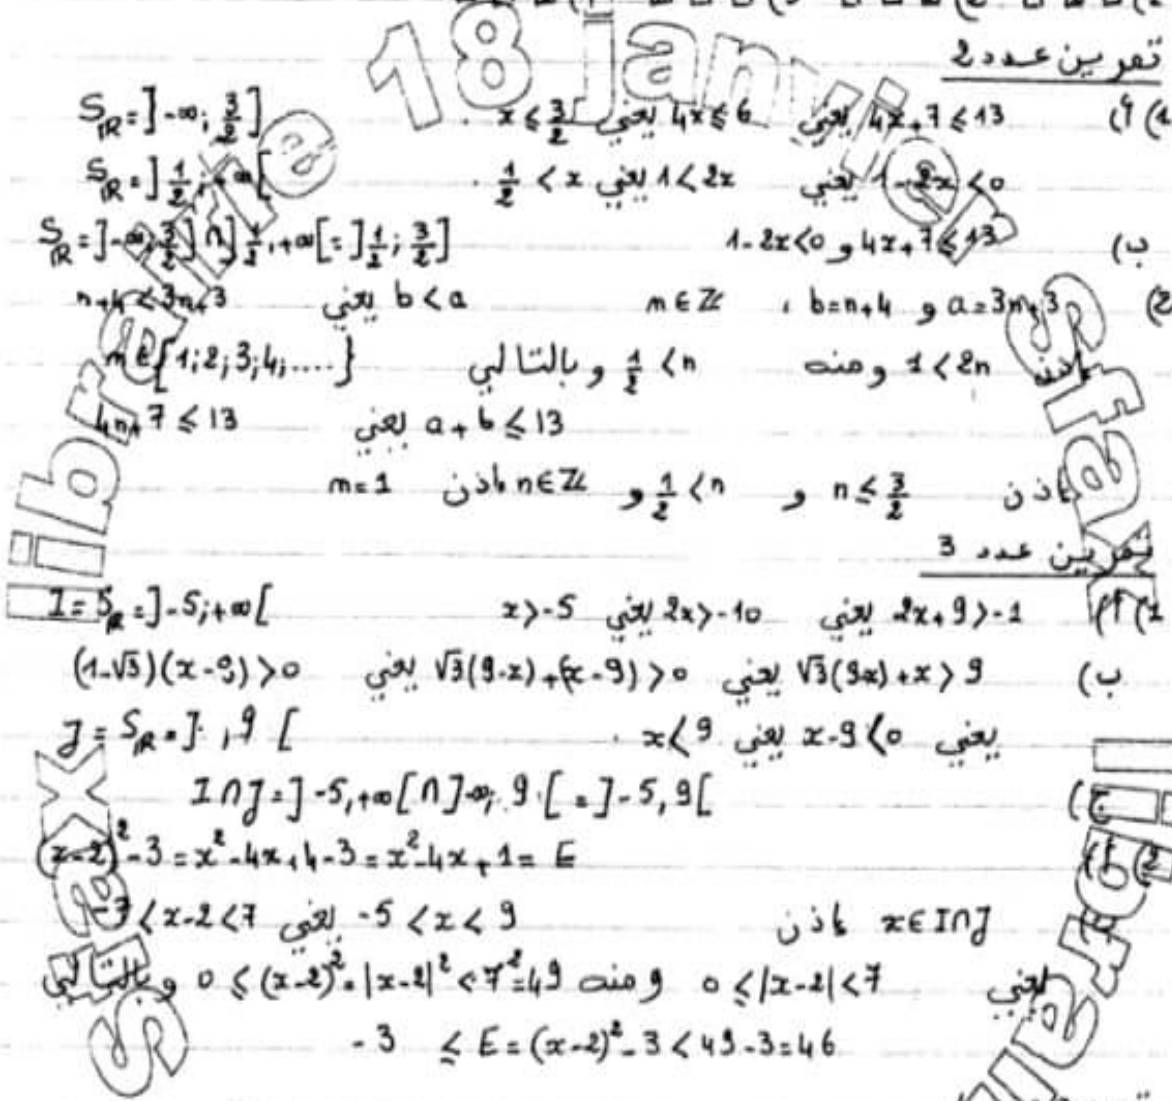 تمرين عدد 2
1) أ) 4x+7≤13 يعني 4x≤6 يعني x≤3/2 . S_IR=]-∞; 3/2]
1-2x<0 يعني 1<2x يعني 1/2 <x . S_IR=]1/2; +∞[
ب) 4x+7≤13 و 1-2x<0 S_IR=]-∞; 3/2]∩]1/2,+∞[=]1/2; 3/2]
2) a=3n+3 و b=n+4 ، n∈ℤ b<a يعني n+4<3n+3
إذن 1<2n ومنه 1/2 <n وبالتالي n∈{1;2;3;4;....}
a+b≤13 يعني 4n+7≤13
إذن n≤3/2 و 1/2 <n و n∈ℤ إذن n=1
تمرين عدد 3
1) أ) 2x+9>-1 يعني 2x>-10 يعني x>-5 I=S_IR=]-5;+∞[
ب) √3(9-x)+x>9 يعني √3(9-x)+(x-9)>0 يعني (1-√3)(x-9)>0
يعني x-9<0 يعني x<9 . J=S_IR=] ,9 [
ج) I∩J=]-5,+∞[∩]-∞; 9[=]-5,9[
2) أ) (x-2)²-3=x²-4x+4-3=x²-4x+1=E
x∈I∩J إذن -5<x<9 يعني -7<x-2<7
يعني 0≤|x-2|<7 ومنه 0≤(x-2)²=|x-2|²<7²=49 وبالتالي
-3 ≤E=(x-2)²-3<49-3=46
18 janvier
librairie
Sfax
Sfax